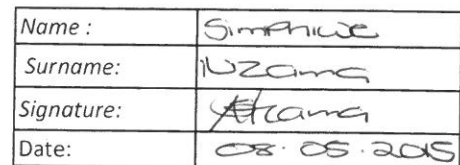 Name : Simphiwe
Surname: Nzama
Signature:
Date: 08.05.2015